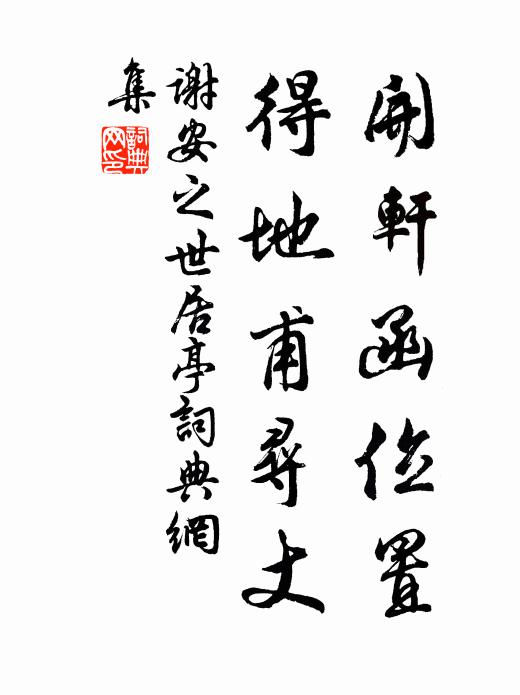 開軒亟位置
得地甫尋丈
謝安之世居亭詞典網
集
詞典
网印